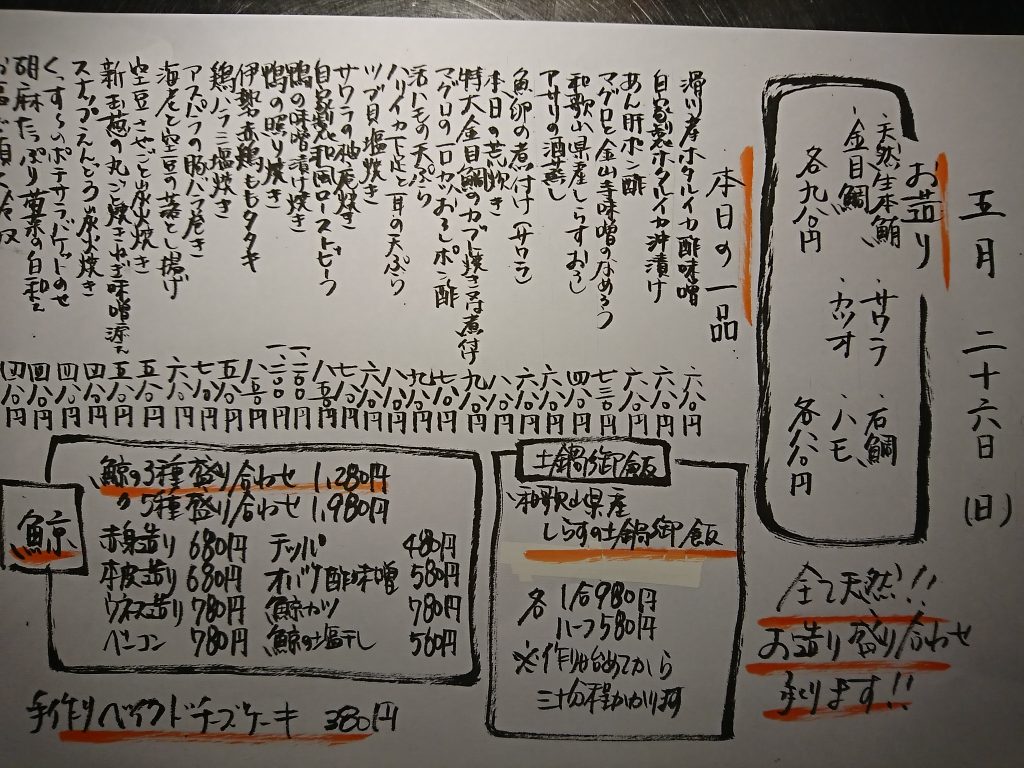 五月 二十六日(日)
お造り
・天然生本鮪
・金目鯛
各九八〇円
・サワラ
・カツオ
・石鯛
・ハモ
各八八〇円
全て天然!!
お造り盛り合わせ
承ります!!
本日の一品
滑川産ホタルイカ酢味噌 六八〇円
自家製ホタルイカ沖漬け 六八〇円
あん肝ポン酢 六八〇円
マグロと金山寺味噌のなめろう 七三〇円
和歌山県産しらすおろし 四八〇円
アサリの酒蒸し 六八〇円
魚卵の煮付け(サワラ) 六八〇円
本日の荒炊き 八八〇円
特大金目鯛のカブト焼き又は煮付 九八〇円
マグロの一口カツおろしポン酢 七八〇円
活ハモの天ぷら 九八〇円
ハリイカ下足と耳の天ぷら 六八〇円
ツブ貝塩焼き 六八〇円
サワラの柚庵焼き 七八〇円
自家製和風ローストビーフ 八八〇円
鴨の味噌漬け焼き 一、二〇〇円
鴨の照り焼き 一、二〇〇円
伊勢赤鶏ももタタキ 八八〇円
鶏ハラミ塩焼き 五八〇円
アスパラの豚バラ巻き 七八〇円
海老と空豆の落とし揚げ 六八〇円
空豆さやごと炭火焼き 五八〇円
新玉葱の丸ごと焼きねぎ味噌添え 五八〇円
スナップえんどう炭火焼き 四八〇円
くんすーのポテサラバゲットのせ 四八〇円
胡麻たっぷり菊菜の白和え 四八〇円
四八〇円
土鍋御飯
和歌山県産
しらすの土鍋御飯
各 1合980円
ハーフ580円
※作り始めてから
三十分程かかります
鯨
鯨の3種盛り合わせ 1,280円
〃 5種盛り合わせ 1,980円
赤身造り 680円 テッパ 480円
本皮造り 680円 オバケ酢味噌 580円
ウネス造り 780円 鯨カツ 780円
ベーコン 780円 鯨の塩干し 560円
手作りベイクドチーズケーキ 380円